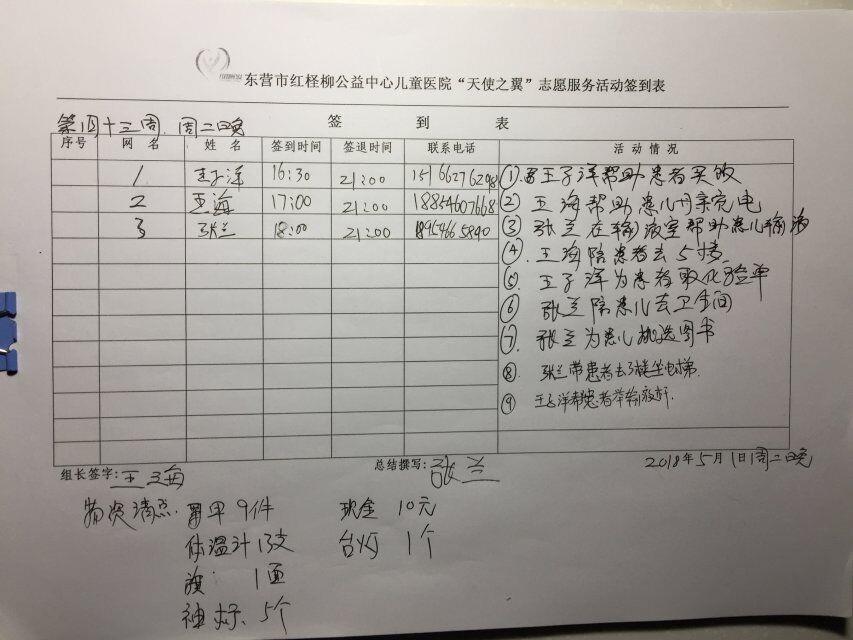 东营市红柽柳公益中心儿童医院“天使之翼”志愿服务活动签到表
第四十三周 周二晚
签 到 表
序号 网 名 姓 名 签到时间 签退时间 联系电话 活 动 情 况
1 王子洋 16:30 21:00 15166276298
2 王海 17:00 21:00 18854607668
3 张兰 18:00 21:00 18954665840
①.王子洋帮助患者买饭
② 王海帮助患儿母亲充电
③ 张兰在输液室帮助患儿输液
④.王海陪患者去5楼
⑤ 王子洋为患者取化验单
⑥ 张兰陪患儿去卫生间
⑦ 张兰为患儿挑选图书
⑧ 张兰带患者去3楼坐电梯.
⑨ 王子洋帮患者举输液杆.
组长签字:王海
总结撰写:张兰
2018年5月1日周二晚
物资清点. 马甲 9件 现金 10元
体温计 13支 台灯 1个
旗: 1面
袖标、5个